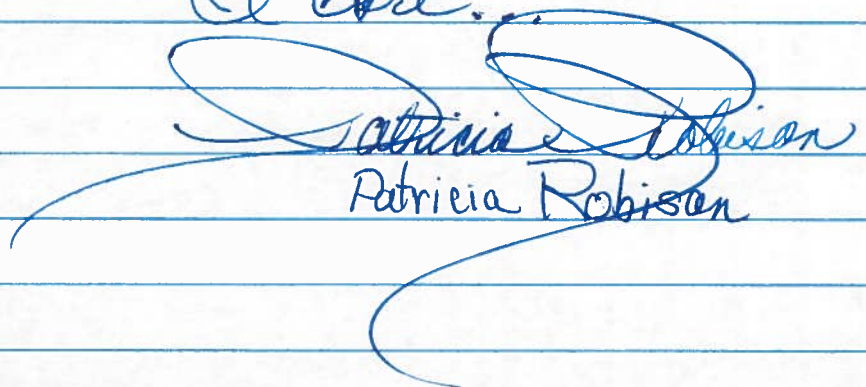 I care...
Patricia Robison
Patricia Robison